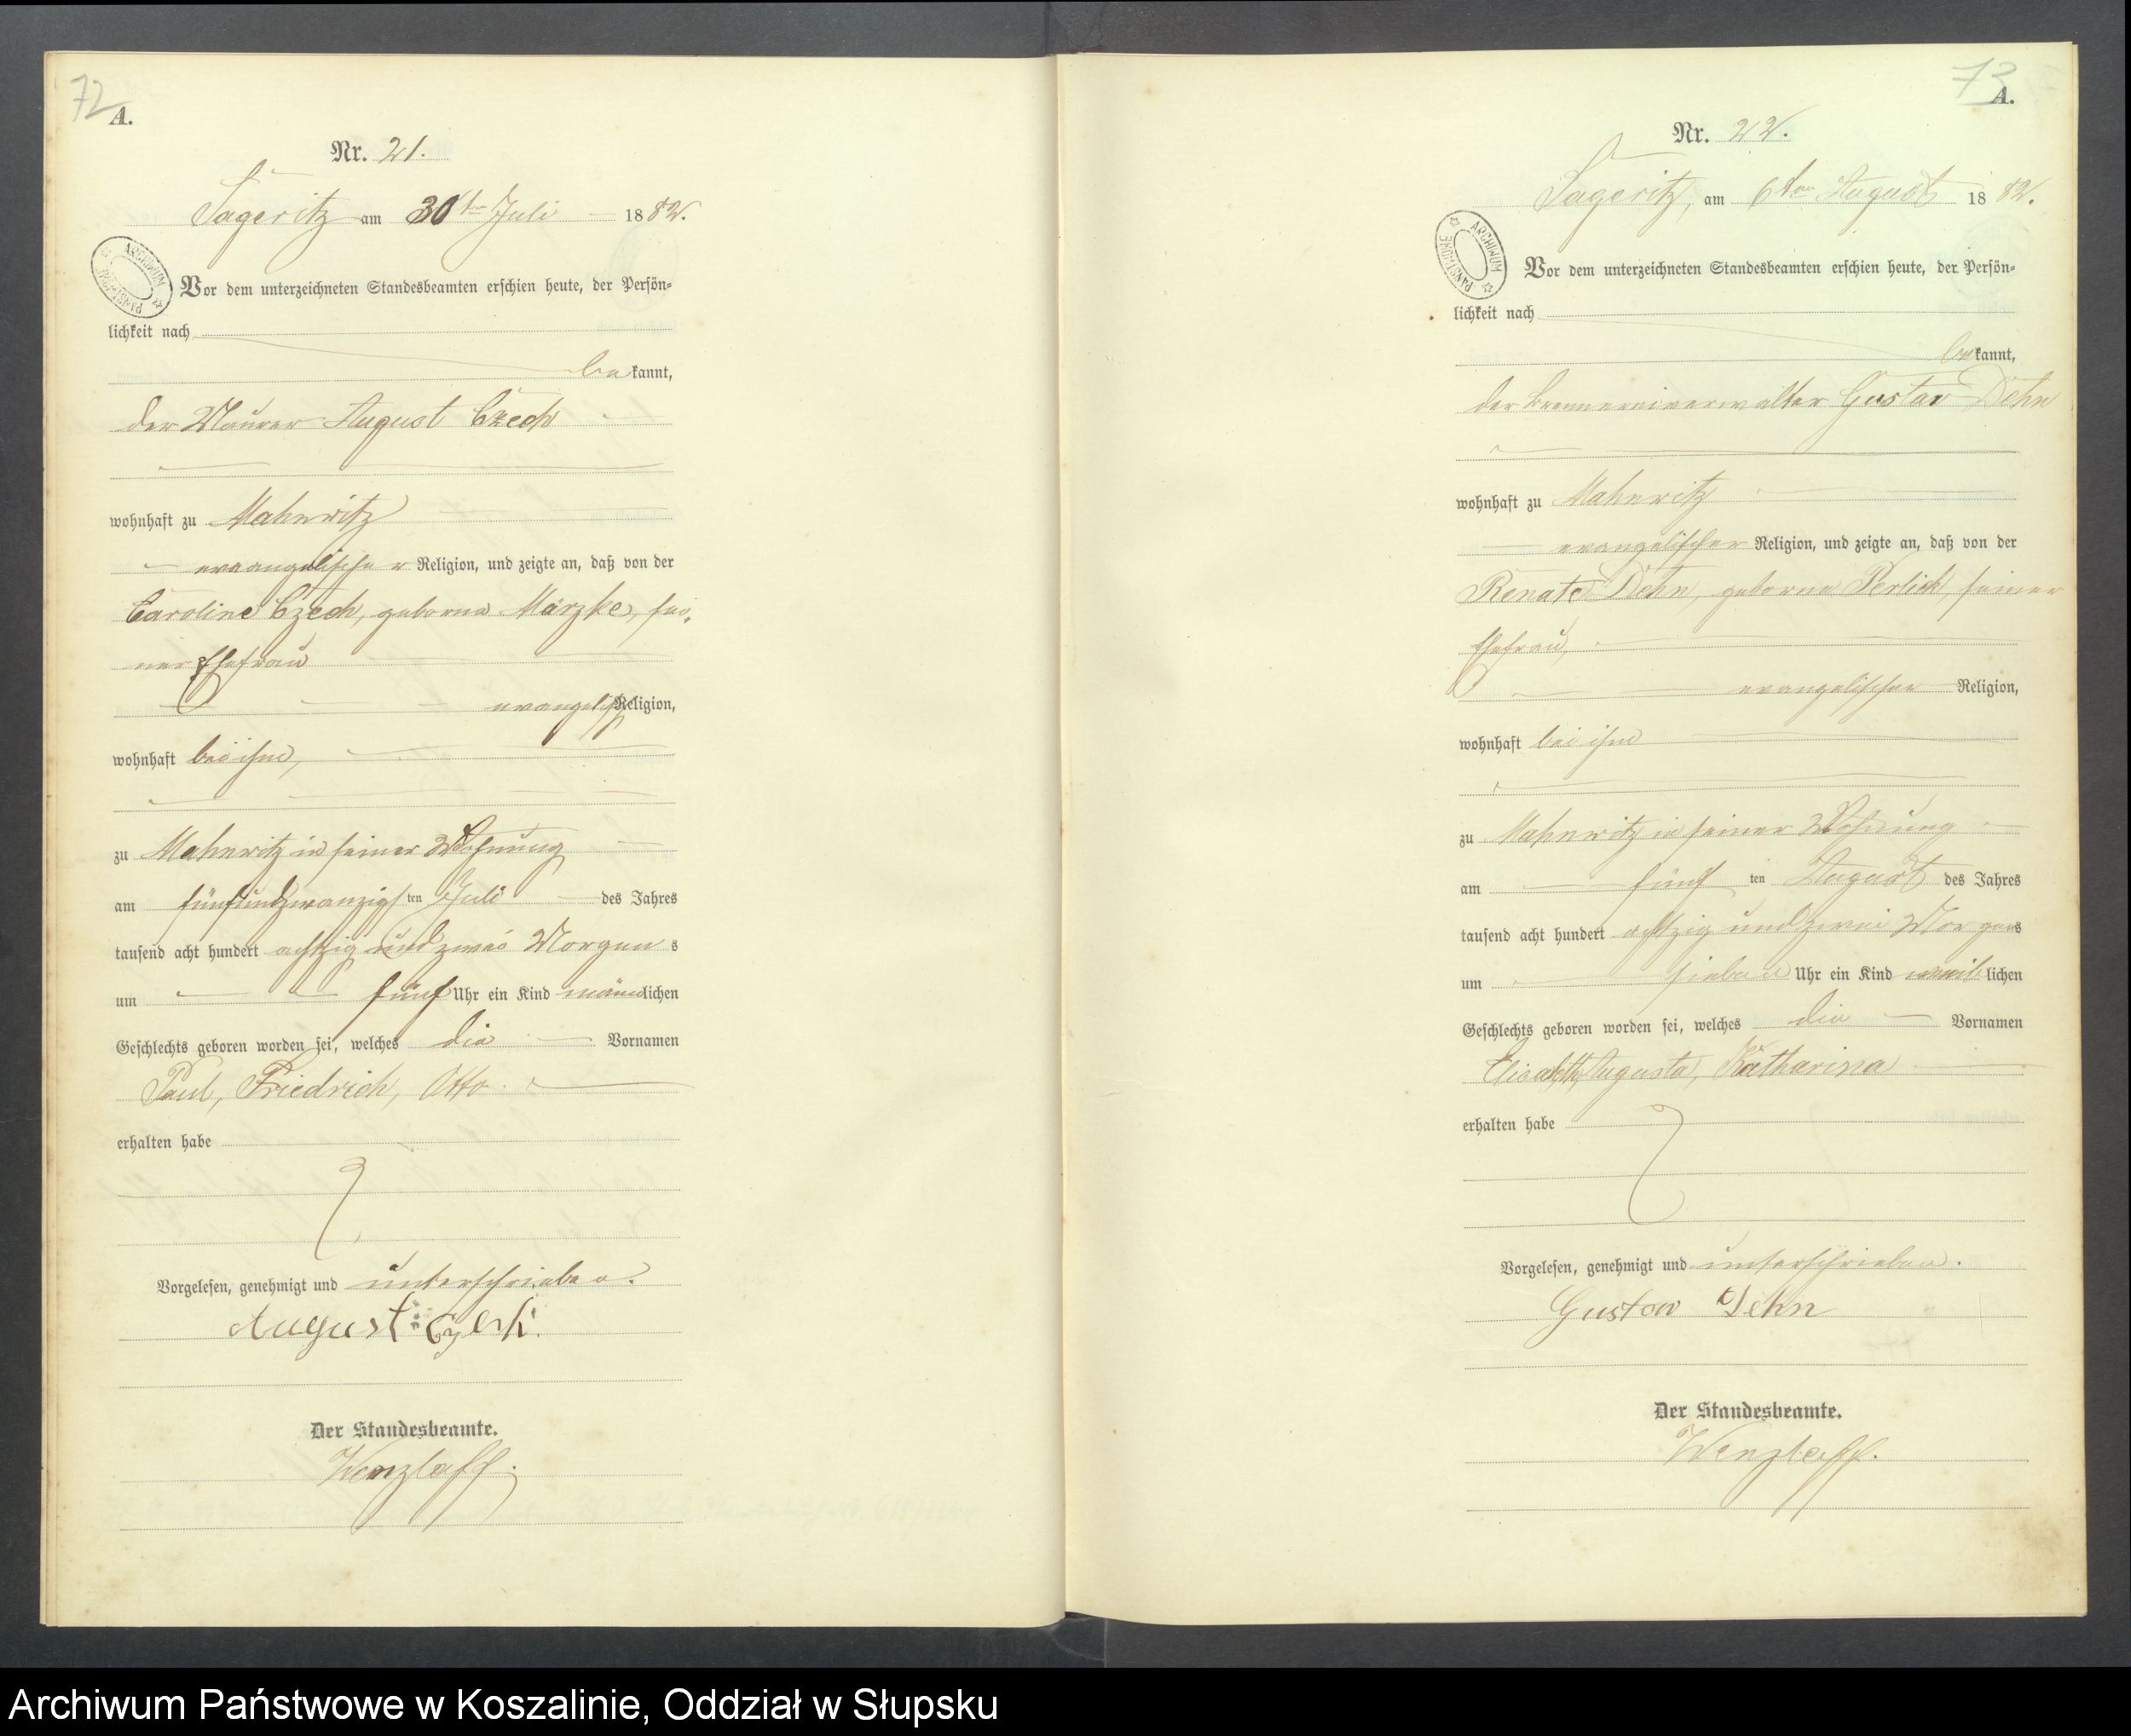 72
A.
Nr. 21.
Sageritz am 30ten Juli 1882.
ARCHIWUM PAŃSTWOWE
Vor dem unterzeichneten Standesbeamten erschien heute, der Persön=
lichkeit nach
bekannt,
der Maurer August Czech
wohnhaft zu Mahnwitz
evangelischer Religion, und zeigte an, daß von der
Caroline Czech, geborne Märzke, sei-
ner Ehefrau
evangelisch Religion,
wohnhaft bei ihm,
zu Mahnwitz in seiner Wohnung
am fünfundzwanzigsten Juli des Jahres
tausend acht hundert achtzig und zwei Morgens
um fünf Uhr ein Kind männlichen
Geschlechts geboren worden sei, welches die Vornamen
Paul, Friedrich, Otto
erhalten habe
Vorgelesen, genehmigt und unterschrieben.
August Czech.
Der Standesbeamte.
Wenzlaff.
73
A.
Nr. 22.
Sageritz, am 6ten August 1882.
ARCHIWUM PAŃSTWOWE
Vor dem unterzeichneten Standesbeamten erschien heute, der Persön=
lichkeit nach
bekannt,
der Brennereiverwalter Gustav Dehn
wohnhaft zu Mahnwitz
evangelischer Religion, und zeigte an, daß von der
Renate Dehn, geborne Perlick, seiner
Ehefrau,
evangelischer Religion,
wohnhaft bei ihm
zu Mahnwitz in seiner Wohnung
am fünf ten August des Jahres
tausend acht hundert achtzig und zwei Morgens
um sieben Uhr ein Kind weiblichen
Geschlechts geboren worden sei, welches die Vornamen
Elisabeth, Augusta, Katharina
erhalten habe
Vorgelesen, genehmigt und unterschrieben.
Gustav Dehn
Der Standesbeamte.
Wenzlaff.
Archiwum Państwowe w Koszalinie, Oddział w Słupsku